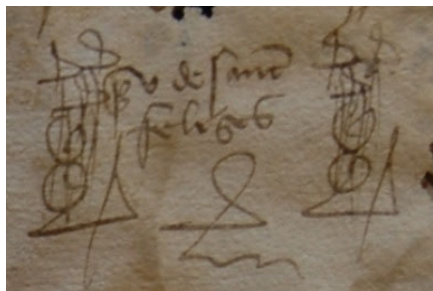 po de sant
felises